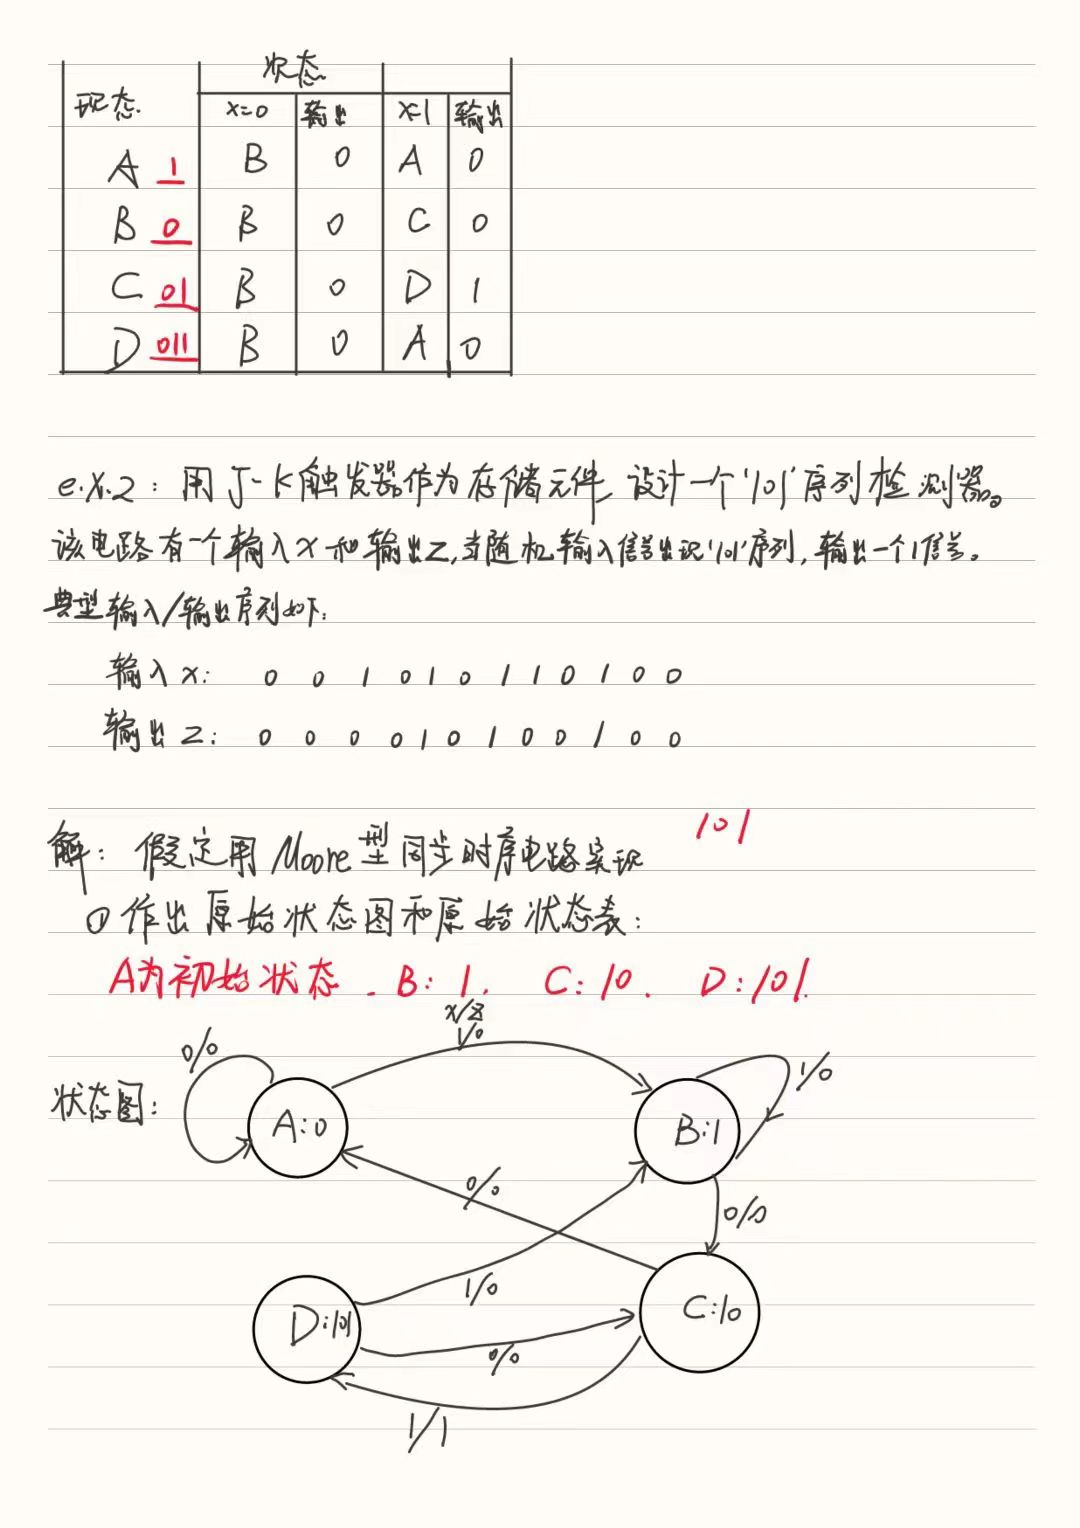 状态
现态 x=0 输出 x=1 输出
A 1 B 0 A 0
B 0 B 0 C 0
C 01 B 0 D 1
D 011 B 0 A 0
e.x.2：用J-K触发器作为存储元件，设计一个'101'序列检测器。
该电路有一个输入x和输出Z，当随机输入信号出现'101'序列，输出一个1信号。
典型输入/输出序列如下：
输入x： 0 0 1 0 1 0 1 1 0 1 0 0
输出Z： 0 0 0 0 1 0 1 0 0 1 0 0
101
解：假定用Moore型同步时序电路实现
①作出原始状态图和原始状态表：
A为初始状态. B：1. C：10. D：101.
x/z
1/0
0/0
状态图：
A:0
B:1
1/0
0/0
0/0
1/0
D:101
C:10
0/0
1/1